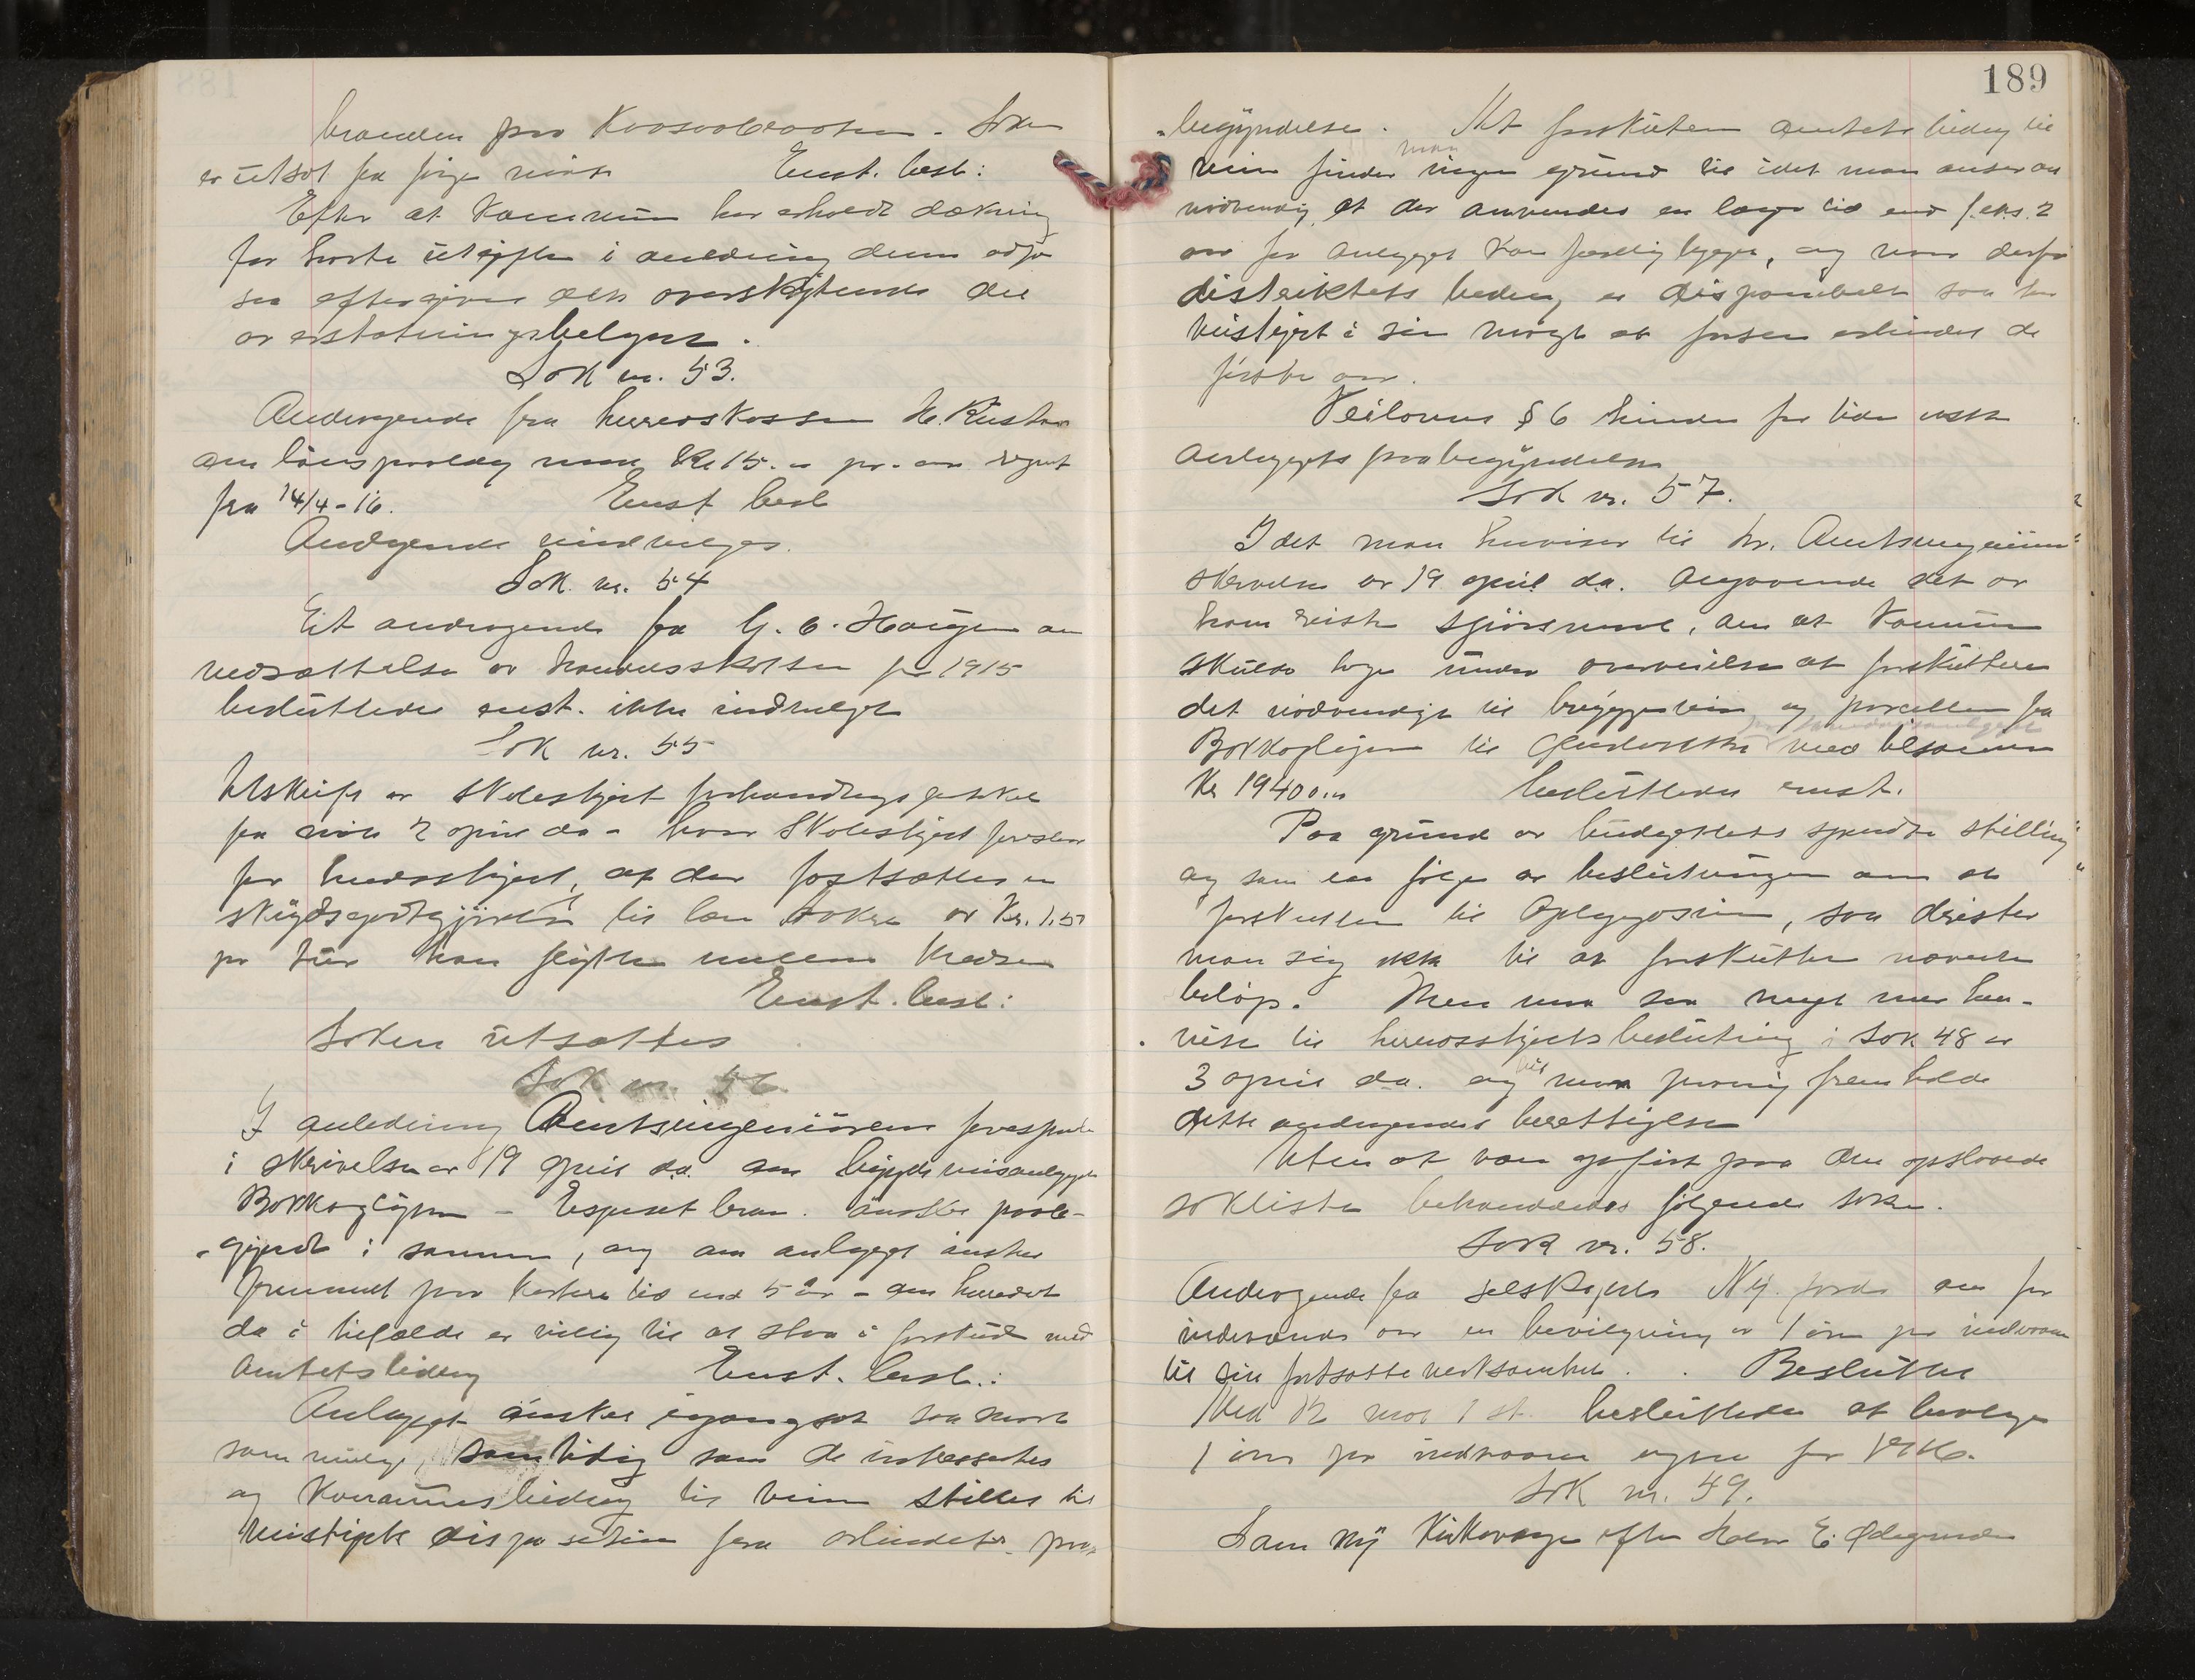 188
branden paa Kaasaabraaten. Saken
er utsat fra forrige møte Enst. besl:
Efter at kommunen har erholdt dækning
for havte utgifter i anledning denne
saa eftergives det overskytende
av erstatningsbeløpet.
Sak nr. 53.
Andragende fra herredskasserer H. Rustan
om lønspaalæg med Kr 15.00 pr. aar regnet
fra 14/4-16. Enst besl
Andragende indvilges.
Sak nr. 54
Et andragende fra G. O. Haugen om
nedsættelse av kommuneskatten for 1915
besluttedes enst. ikke indvilget
Sak nr. 55
Utskrift av Skolestyret forhandlingsprotokol
fra møte 2 april da - hvor Skolestyret foreslaar
for herredsstyret, at der fastsættes en
skydsgodtgjørelse til lærer av Kr. 1,50
pr tur han flytter mellem kredsene
Enst. besl:
Saken utsættes
Sak nr. 56
I anledning Amtsingeniørens forespørsel
i skrivelse av 19 april d.a. om bygdeveisanlægget
Bakkoglien - Espeset bru ønskes paabe-
gyndt i sommer, og om anlægget ønskes
fremmet paa kortere tid end 5 år - om herredet
da i tilfælde er villig til at staa i forskud med
Amtets bidrag Enst. besl.:
Anlægget ønskes igangsat saa snart
som mulig, samtidig som de interessertes
og Kommunens bidrag til veien stilles til
veistyrets disposition fra arbeidets paa-
189
begyndelse. At forskutere amtets bidrag til
veien finder man ingen grund til idet man anser
nødvendig at der anvendes en længere tid end f.eks. 2
aar før anlægget kan færdigbygges, og naar derfor
distriktets bidrag er disponibelt saa har
veistyret i sin magt at forsere arbeidet de
første aar.
Veilovens § 6 hindrer for tiden ikke
anlæggets paabegyndelse
Sak nr. 57.
Idet man henviser til hr. Amtsingeniørens
skrivelse av 19 april d.a. angaaende det av
ham reiste spørsmaal, om at kommunen
skulde tage under overveielse at forskuttere
det nødvendige til byggeveien og parcellen fra
Bakkoglien til med tilsammen
Kr 19400.00 besluttedes enst.
Paa grund av budgettets spendte stilling
og som en følge av beslutningen om at
forskuttere til Oplagsveien, saa drister
man sig ikke til at forskuttere nævnte
beløp. Men man saa meget mer hen-
vise til herredsstyrets beslutning i sak 48 av
3 april d.a. og vil man paany fremholde
dette andragendes berettigelse
Uten at være opført paa den opslaaede
sakliste behandledes følgende saker.
Sak nr. 58.
Andragende fra selskapet Ny jord om for
indeværende aar en bevilgning av 1 øre pr indvaaner
til sin fortsatte verksomhet. Besluttet
Med 12 mot 1 st. besluttedes at bevilge
1 øre pr indvaaner for 1916.
Sak nr. 59.
Som ny Kirkeverge efter Halvor E. Ødegaarden